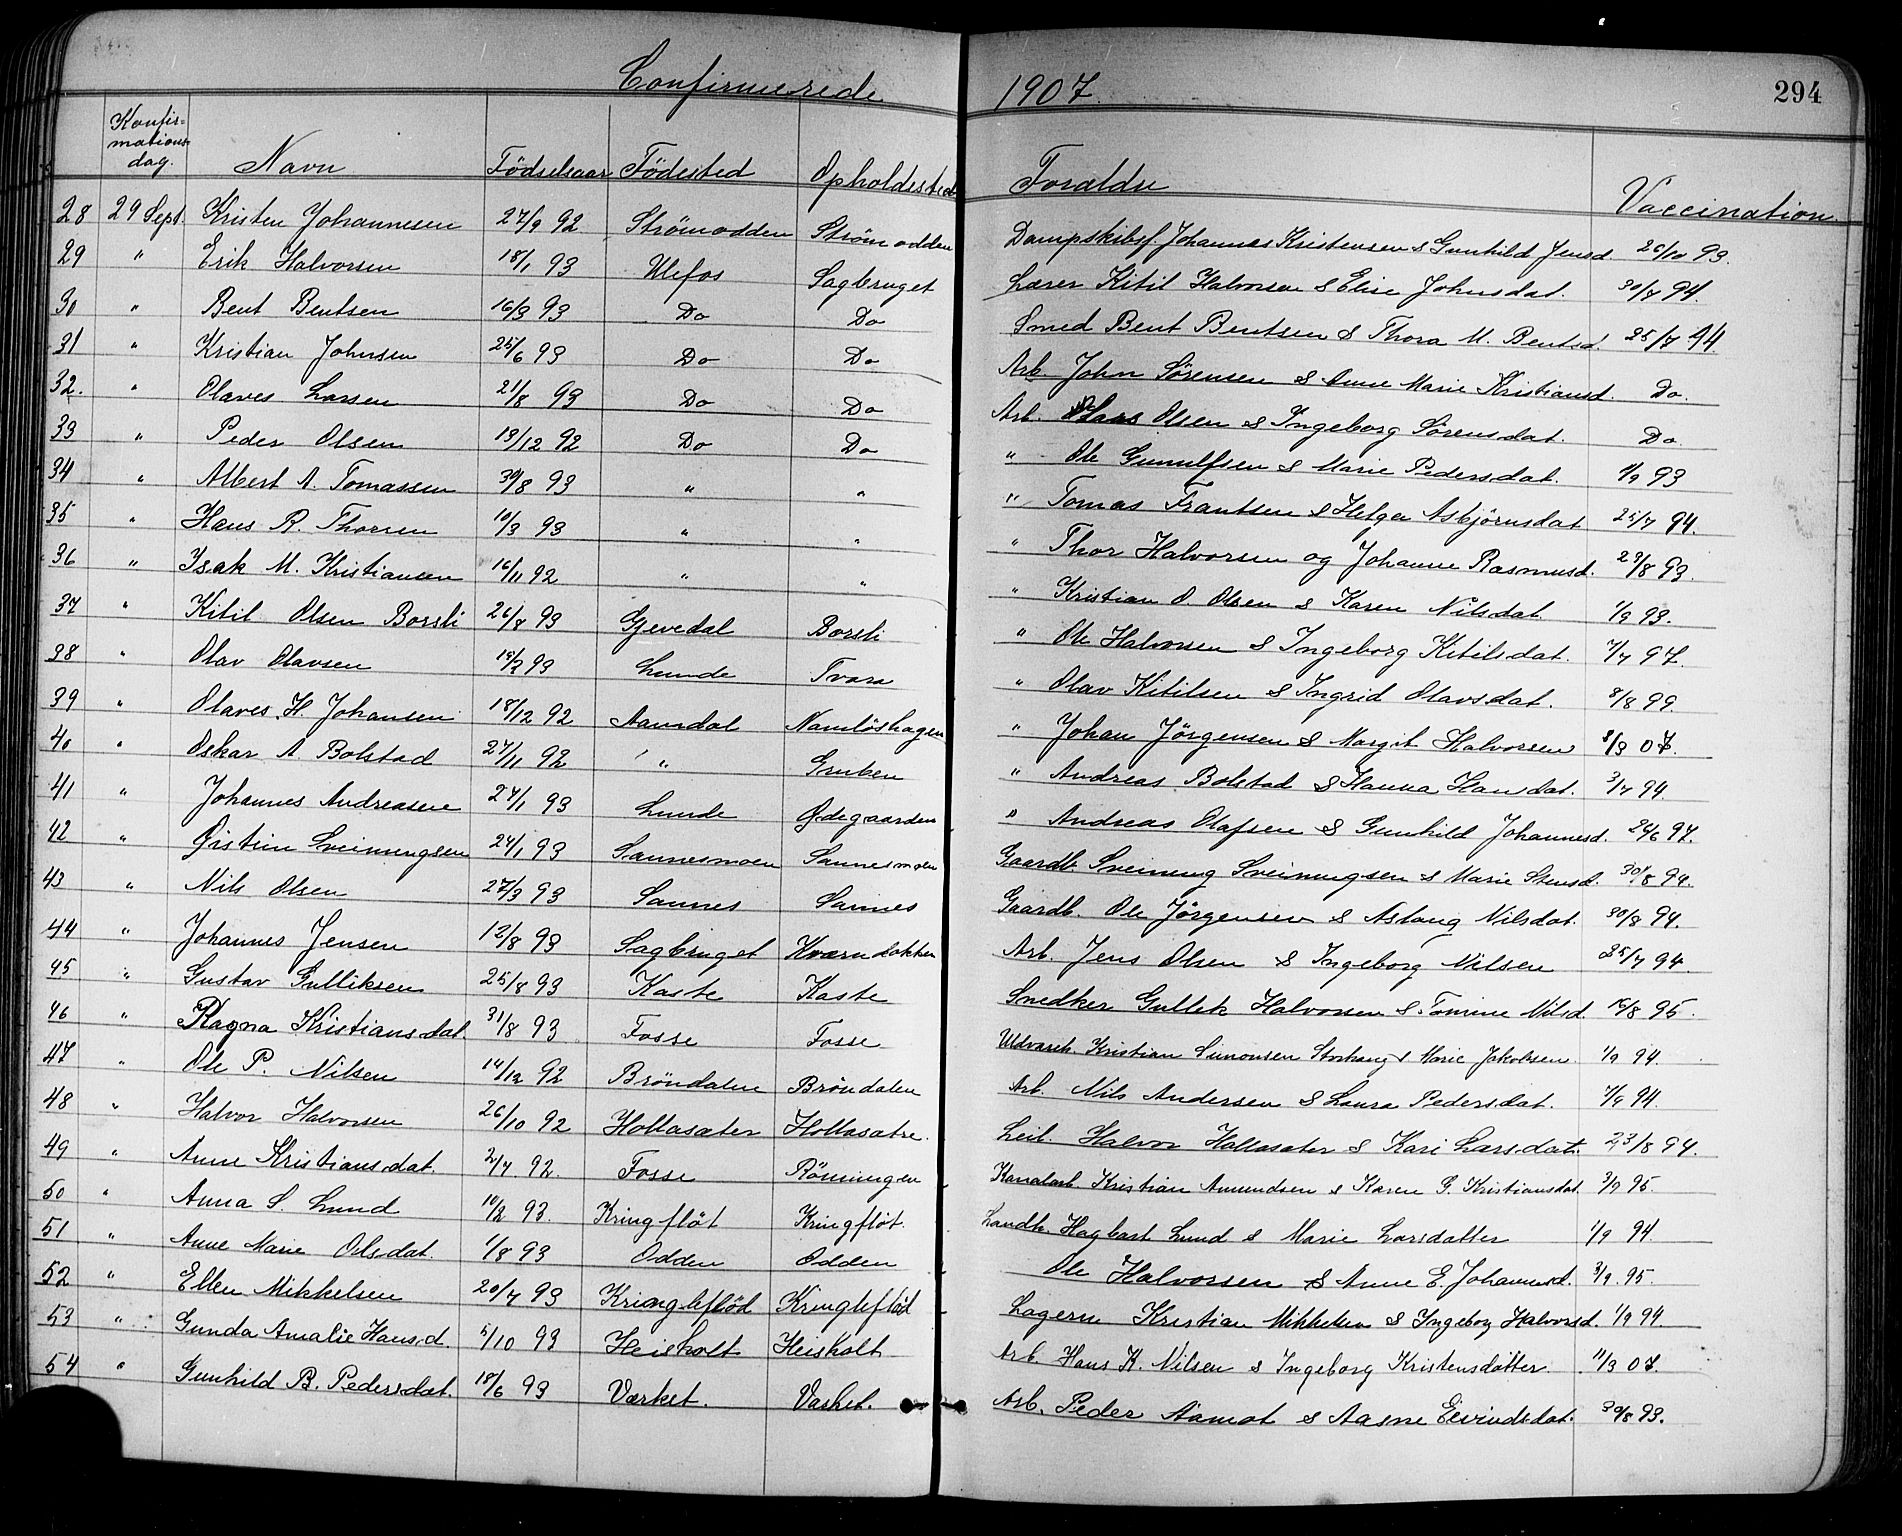 Confirmerede 1907. 294
Konfirmationsdag. Navn Fødselsaar Fødested Opholdssted Forældre Vaccination
28 29 Sept. Kristen Johannesen 27/9 92 Strømodden Strømodden Dampskibsf. Johannes Kristensen & Gunhild Jensd. 26/10 93.
29 " Erik Halvorsen 18/1 93 Ulefos Sagbruget Lærer Kitil Halvorsen & Elise Johnsdat. 30/7 94.
30 " Bent Bentsen 16/3 93 Do Do Smed Bent Bentsen & Thora M. Bentsd. 25/7 94.
31 " Kristian Johnsen 25/6 93 Do Do Arb. John Sørensen & Anne Marie Kristiansd. Do.
32. " Olaves Larsen 21/8 93 Do Do Arb. Lars Olsen & Ingeborg Sørensdat. Do
33 " Peder Olsen 13/12 92 Do Do " Ole Gunulfsen & Marie Pedersdat. 1/9 93
34 " Albert A. Tomassen 30/8 93 " " " Tomas Frantsen & Helga Asbjörnsdat 25/7 94.
35 " Hans R. Thorsen 10/3 93 " " " Thor Halvorsen og Johanne Rasmusd. 23/8 93.
36 " Isak M. Kristiansen 16/11 92 " " " Kristian O. Olsen & Karen Nilsdat 1/9 93.
37 " Kitil Olsen Borsli 26/8 93 Gjevedal Borsli " Ole Halvorsen & Ingeborg Kitilsdat. 7/7 97.
38 " Olav Olavsen 19/2 93 Lunde Tvara " Olav Kitilsen & Ingrid Olavsdat. 8/8 99.
39 " Olaves H. Johansen 18/12 92 Aamdal Namlöshagen " Johan Jörgensen & Margit Halvorsen 8/3 07.
40 " Oskar A. Bolstad 27/11 92 " Gruben " Andreas Bolstad & Hanna Hansdat. 3/7 94.
41 " Johannes Andreasen 27/1 93 Lunde Ødegaarden " Andreas Olafsen & Gunhild Johannesd. 24/6 97.
42 " Øistein Sveinungsen 24/1 93 Sannesmoen Sannesmoen Gaardb. Sveinung Sveinungsen & Marie Stensd. 30/8 94.
43 " Nils Olsen 27/3 93 Sannes Sannes Gaardb. Ole Jørgensen & Aslaug Nilsdat. 30/8 94.
44 " Johannes Jensen 12/8 93 Sagbruget Kværndokken Arb. Jens Olsen & Ingeborg Nilsen 25/7 94.
45 " Gustav Gulliksen 25/8 93 Kaste Kaste Snedker Gullek Halvorsen & Tomine Nilsd. 16/8 95.
46 " Ragna Kristiansdat. 31/8 93 Fosse Fosse Kristian Simonsen Storhaug & Marie Jakobsen 1/9 94.
47 " Ole P. Nilsen 14/12 92 Bröndalen Bröndalen Arb. Nils Andersen & Laura Pedersdat. 7/9 94.
48 " Halvor Halvorsen 26/10 92 Hollasæter Hollasætre. Leil. Halvor Hollasæter & Kari Larsdat. 23/8 94.
49 " Anne Kristiansdat. 2/7 92. Fosse Röiningen Kanalarb. Kristian Amundsen & Karen G. Kristiansdat. 3/9 95.
50 " Anna S. Lund 10/2 93. Kringflöt Kringflöt. Landh. Hagbart Lund & Marie Larsdatter 1/9 94.
51 " Anne Marie Olsdat. 1/8 93 Odden Odden Ole Halvorsen & Anne E. Johannesd. 3/9. 95.
52 " Ellen Mikkelsen 20/7 93 Kringleflöd Kringleflöd Lagerm Kristian Mikkelsen & Ingeborg Halvorsd. 1/9 94.
53 " Gunda Amalie Hansd. 5/10 93 Heisholt Heisholt Arb. Hans K. Nilsen & Ingeborg Kristensdatter. 11/3 07.
54 " Gunhild B. Pedersdat. 18/6 93 Værket. Værket. Arb. Peder Aamot & Aasne Eivindsdat. 30/8 93.